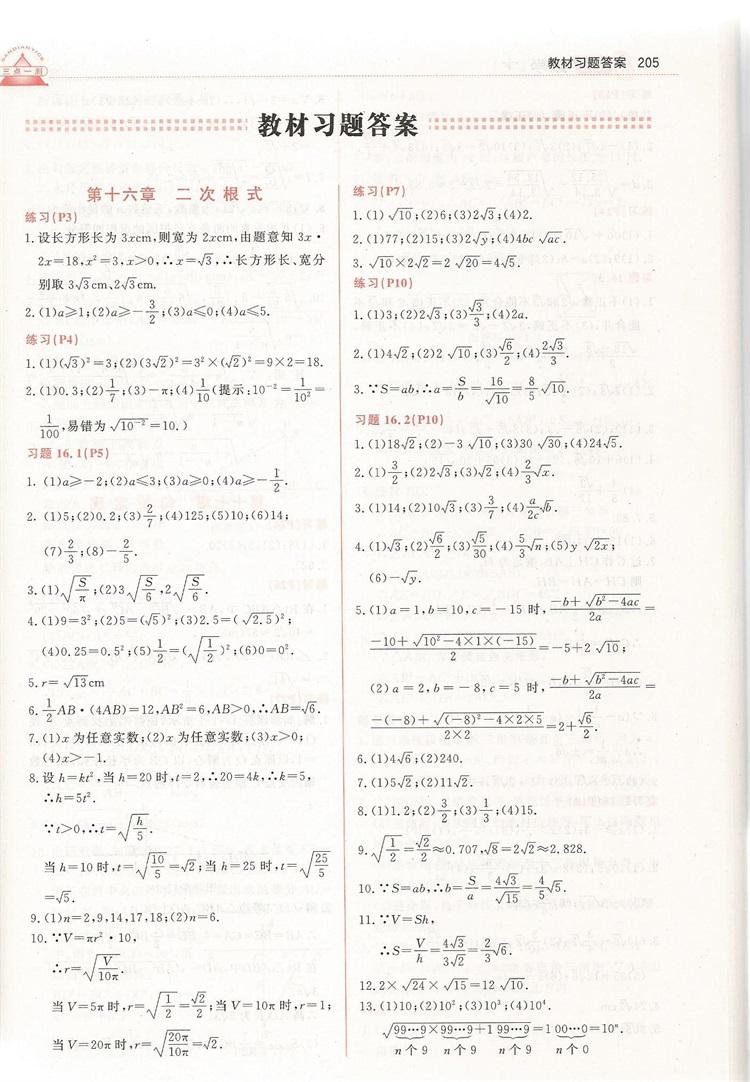 SANDIANYICE
三点一测
教材习题答案 205
教材习题答案
第十六章 二次根式
练习(P3)
1.设长方形长为 3xcm,则宽为 2xcm,由题意知 3x·
2x=18,x²=3,x>0,∴x=√3,∴长方形长、宽分
别取 3√3cm,2√3cm.
2.(1)a≥1;(2)a≥-3/2;(3)a≤0;(4)a≤5.
练习(P4)
1.(1)(√3)²=3;(2)(3√2)²=3²×(√2)²=9×2=18.
2.(1)0.3;(2)1/7;(3)-π;(4)1/10(提示:10⁻²=1/10²=
1/100,易错为√(10⁻²)=10.)
习题 16.1(P5)
1.(1)a≥-2;(2)a≤3;(3)a≥0;(4)a≥-1/2.
2.(1)5;(2)0.2;(3)2/7;(4)125;(5)10;(6)14;
(7)2/3;(8)-2/5.
3.(1)√(S/π);(2)3√(S/6),2√(S/6).
4.(1)9=3²;(2)5=(√5)²;(3)2.5=(√2.5)²;
(4)0.25=0.5²;(5)1/2=(√(1/2))²;(6)0=0².
5.r=√13cm
6.1/2AB·(4AB)=12,AB²=6,AB>0,∴AB=√6.
7.(1)x 为任意实数;(2)x 为任意实数;(3)x>0;
(4)x>-1.
8.设 h=kt²,当 h=20 时,t=2,∴20=4k,∴k=5,
∴h=5t².
∵t>0,∴t=√(h/5).
当 h=10 时,t=√(10/5)=√2;当 h=25 时,t=√(25/5)
=√5.
9.(1)n=2,9,14,17,18;(2)n=6.
10.∵V=πr²·10,
∴r=√(V/10π).
当 V=5π 时,r=√(1/2)=√2/2;当 V=10π 时,r=1;
当 V=20π 时,r=√(20π/10π)=√2.
练习(P7)
1.(1)√10;(2)6;(3)2√3;(4)2.
2.(1)77;(2)15;(3)2√y;(4)4bc√ac.
3.√10×2√2=2√20=4√5.
练习(P10)
1.(1)3;(2)2√3;(3)√3/3;(4)2a.
2.(1)4√2;(2)2√10;(3)√6/2;(4)2√3/3.
3.∵S=ab,∴a=S/b=16/√10=8/5√10.
习题 16.2(P10)
1.(1)18√2;(2)-3√10;(3)30√30;(4)24√5.
2.(1)3/2;(2)2√3;(3)√2/2;(4)2/3√x.
3.(1)14;(2)10√3;(3)3/7;(4)a/2c√b.
4.(1)√3;(2)√6/2;(3)√5/30;(4)5/3√n;(5)y√2x;
(6)-√y.
5.(1)a=1,b=10,c=-15 时,(-b+√(b²-4ac))/2a=
(-10+√(10²-4×1×(-15)))/2=-5+2√10;
(2)a=2,b=-8,c=5 时,(-b+√(b²-4ac))/2a=
(-(-8)+√((-8)²-4×2×5))/(2×2)=2+√6/2.
6.(1)4√6;(2)240.
7.(1)5√2;(2)11√2.
8.(1)1.2;(2)3/2;(3)1/3;(4)15.
9.√(1/2)=√2/2≈0.707,√8=2√2≈2.828.
10.∵S=ab,∴b=S/a=4√3/√15=4/5√5.
11.∵V=Sh,
∴S=V/h=4√3/3√2=2/3√6.
12.2×√24×√15=12√10.
13.(1)10;(2)10²;(3)10³;(4)10⁴.
√(99…9×99…9+1 99…9)=1 00…0=10ⁿ.
n个9 n个9 n个9 n个0